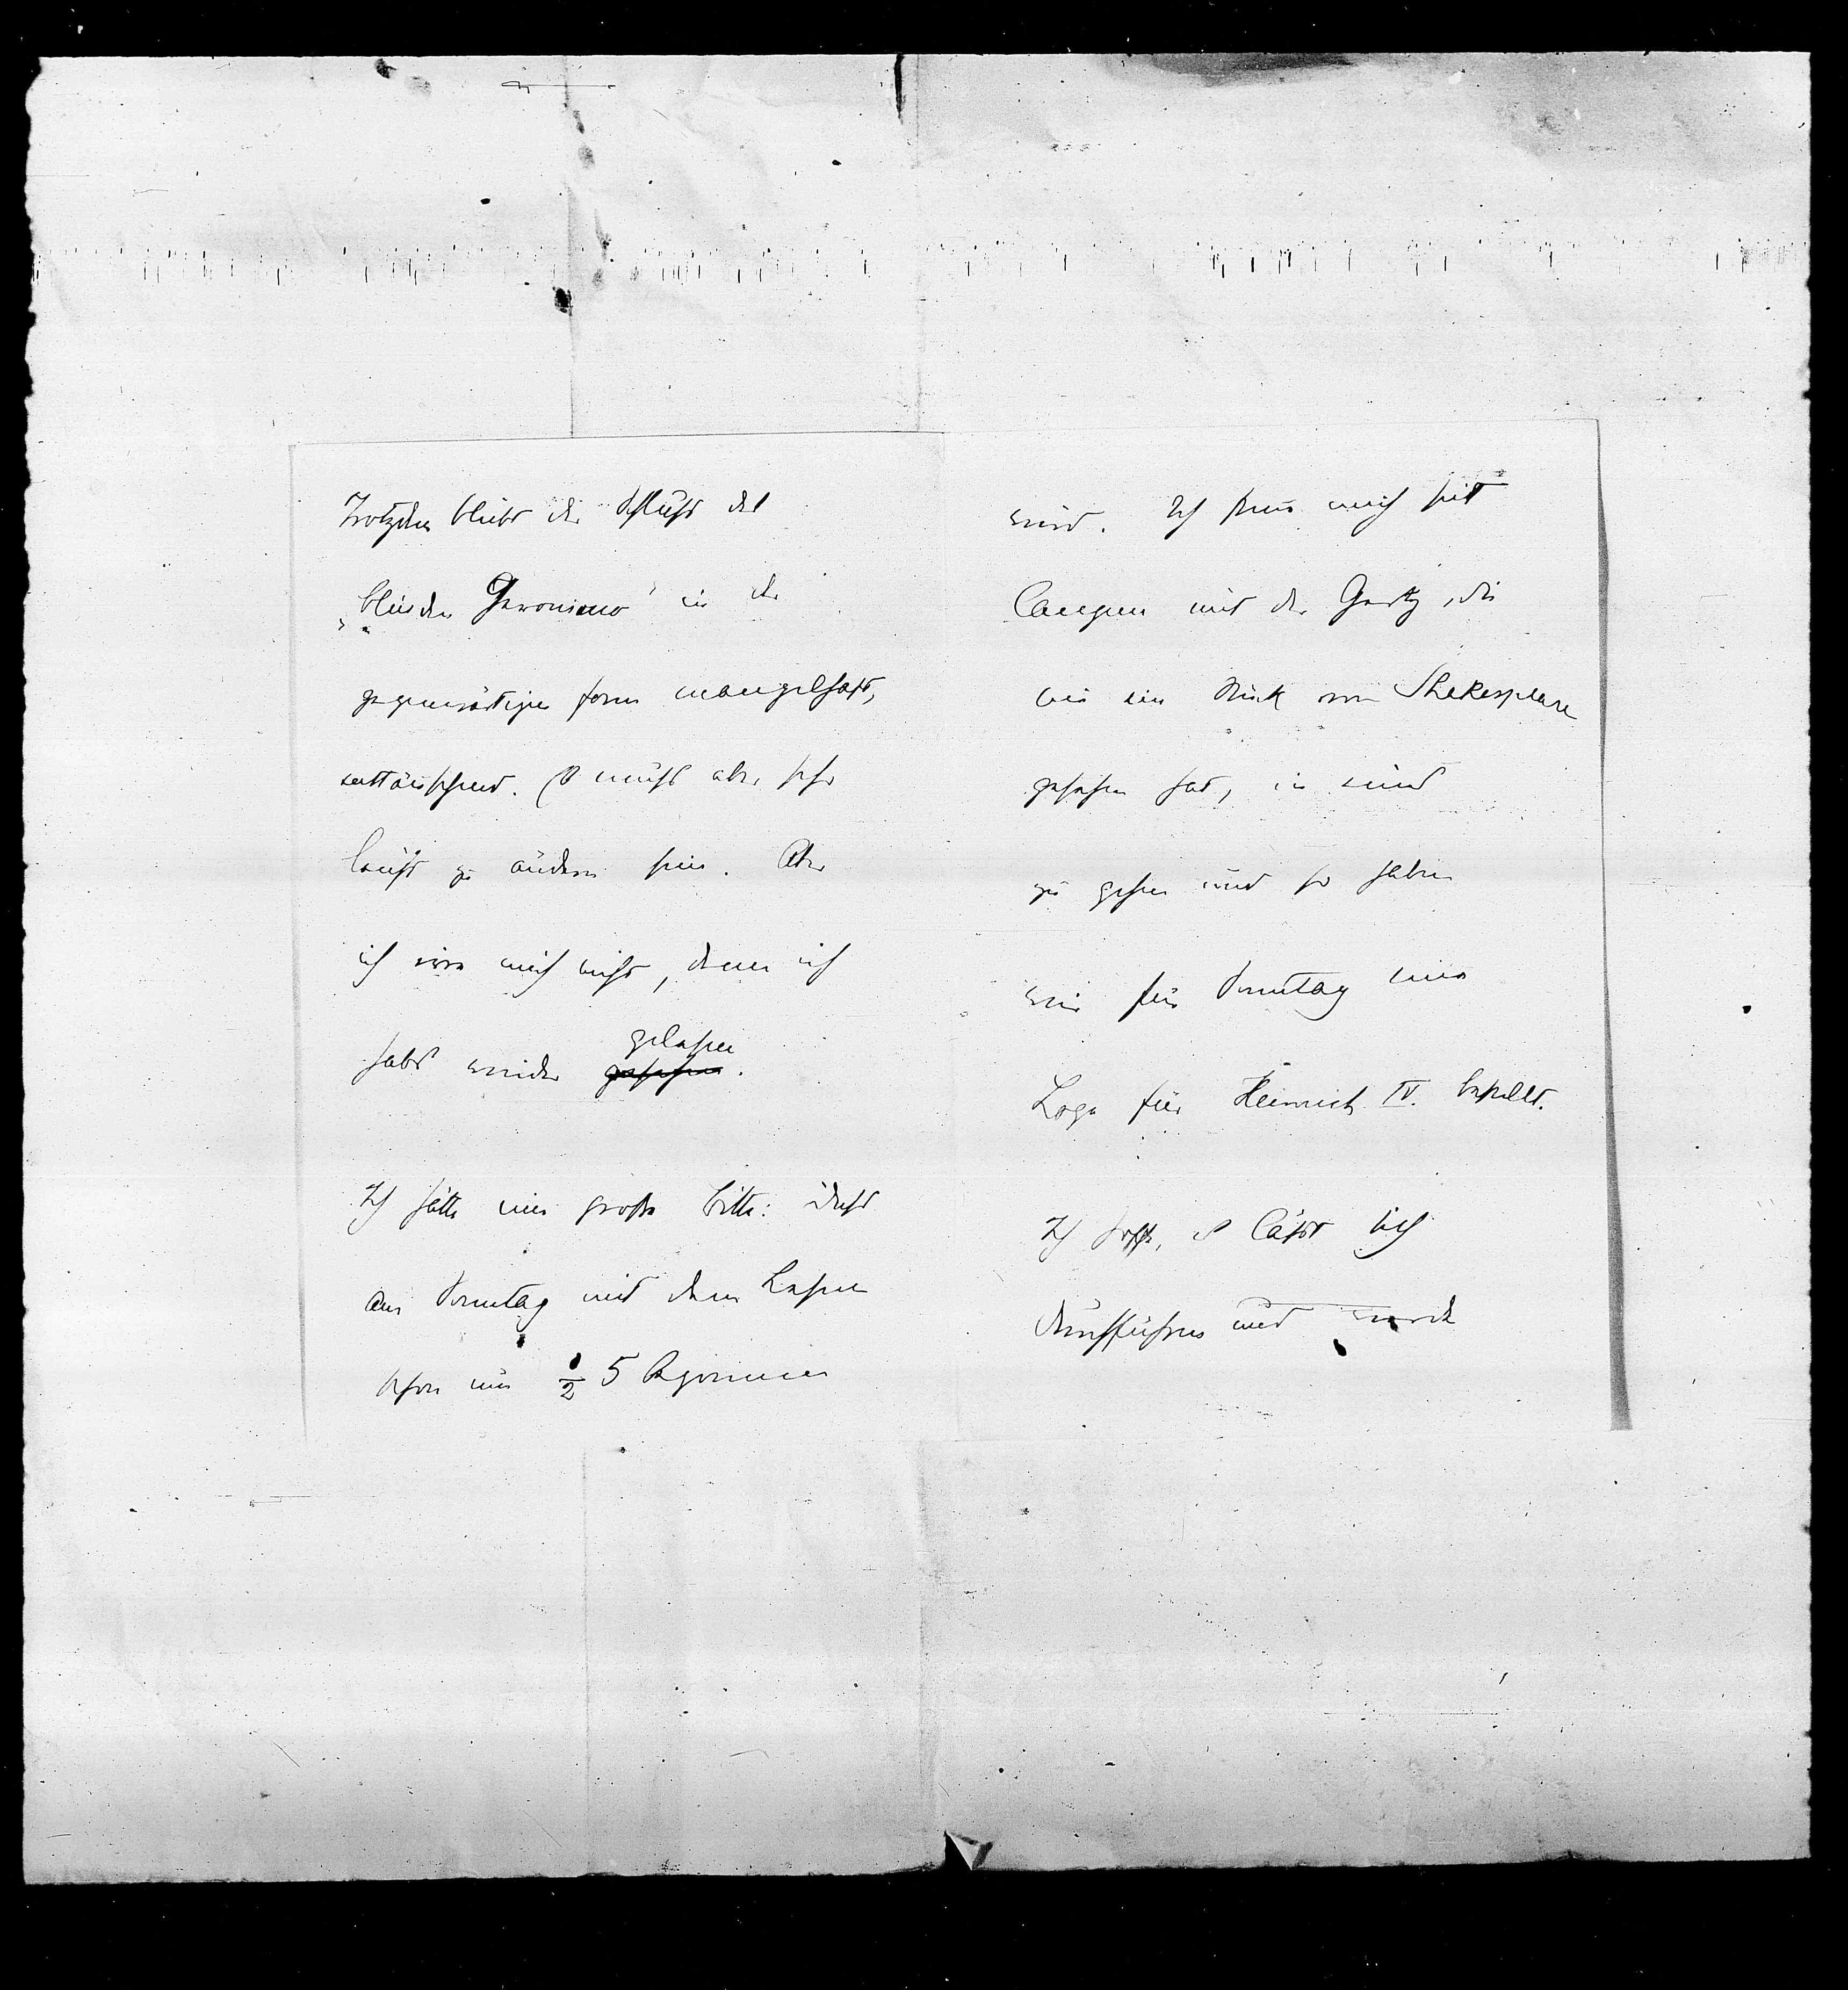 Trotzdem bleibt der Schluss des
„blinden Geronimo" in der
gegenwärtigen Form mangelhaft,
enttäuschend. Es muss aber sehr
leicht zu ändern sein. Aber
ich irre mich nicht, denn ich
habs wieder gelesen
gesehen.
Ich hätte eine große Bitte: dass
am Sonntag mit dem Lesen
schon um ½ 5 begonnen
wird. Ich freue mich seit
langem mit der Gerty, die
nie ein Stück von Shakespeare
gesehen hat, in eines
zu gehen und so haben
wir für Sonntag eine
Loge für Heinrich IV. bestellt.
Ich hoffe, es lässt sich
durchführen und